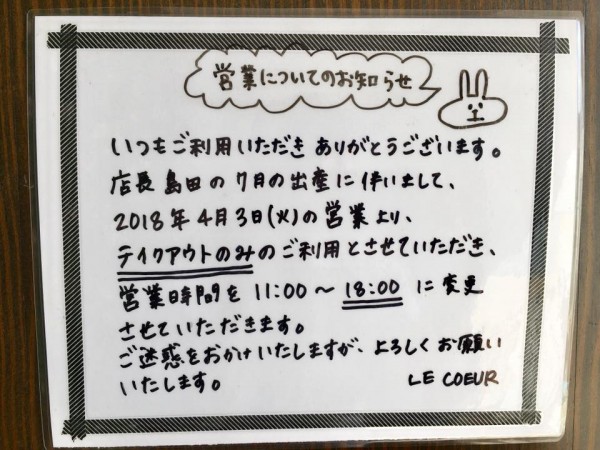 営業についてのお知らせ
いつもご利用いただき ありがとうございます。
店長 島田の7月の出産に伴いまして、
2018年4月3日(火)の営業より、
テイクアウトのみのご利用とさせていただき、
営業時間を 11:00～18:00 に変更
させていただきます。
ご迷惑をおかけいたしますが、よろしくお願い
いたします。 LE COEUR